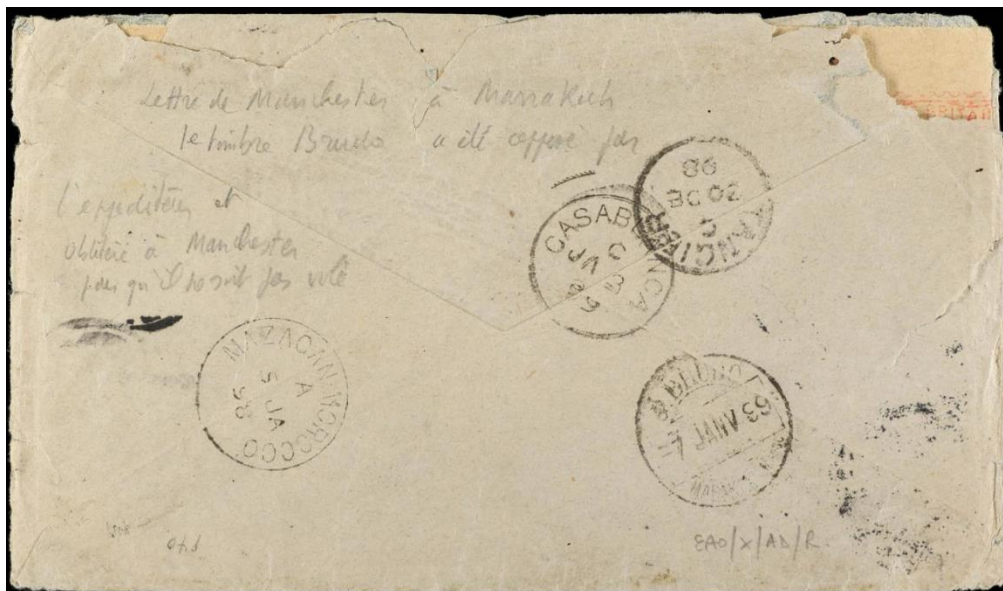 Lettre de Manchester à Marrakech
le timbre Brudo a été apposé par
l'expéditeur et
oblitéré à Manchester
pour qu'il ne soit pas volé
TANGIER
C
20 DE
98
CASABLANCA
C
JA
MAZAGAN-MOROCCO
A
5 JA
98
BRUDO
7 JANV
EAO/X/AD/R